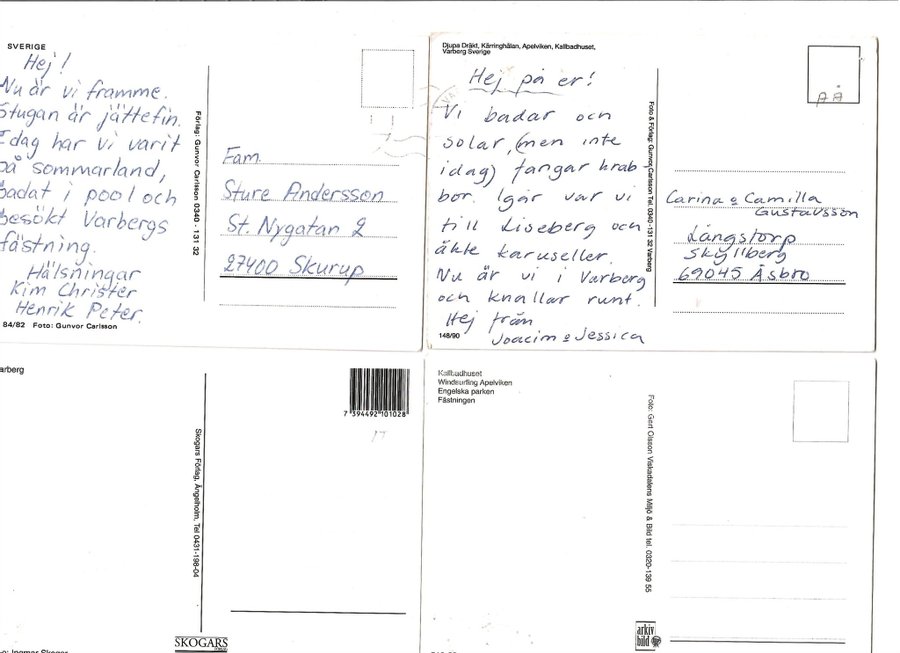 SVERIGE
Hej!
Nu är vi framme.
Stugan är jättefin.
Idag har vi varit
på sommarland,
badat i pool och
besökt Varbergs
fästning.
Hälsningar
Kim Christer
Henrik Peter.
84/82 Foto: Gunvor Carlsson
Förlag: Gunvor Carlsson 0340 - 131 32
Fam.
Sture Andersson
St. Nygatan 2
27400 Skurup
Djupa Dräkt, Kärringhålan, Apelviken, Kallbadhuset,
Varberg Sverige
Hej på er!
Vi badar och
solar, (men inte
idag) fångar krab-
bor. Igår var vi
till Liseberg och
åkte karuseller.
Nu är vi i Varberg
och knallar runt.
Hej från
Joacim o Jessica
148/90
Foto & Förlag: Gunvor Carlsson Tel. 0340-131 32 Varberg
Carina o Camilla
Gustavsson
Långstorp
Skyllberg
69045 Åsbro
arberg
7 394492 101028
Skogars Förlag, Ängelholm, Tel 0431-198-04
SKOGARS
o: Ingmar Skogar
Kallbadhuset
Windsurfing Apelviken
Engelska parken
Fästningen
Foto: Gert Olsson Viskadalens Miljö & Bild tel. 0320-139 55
arkiv
bild